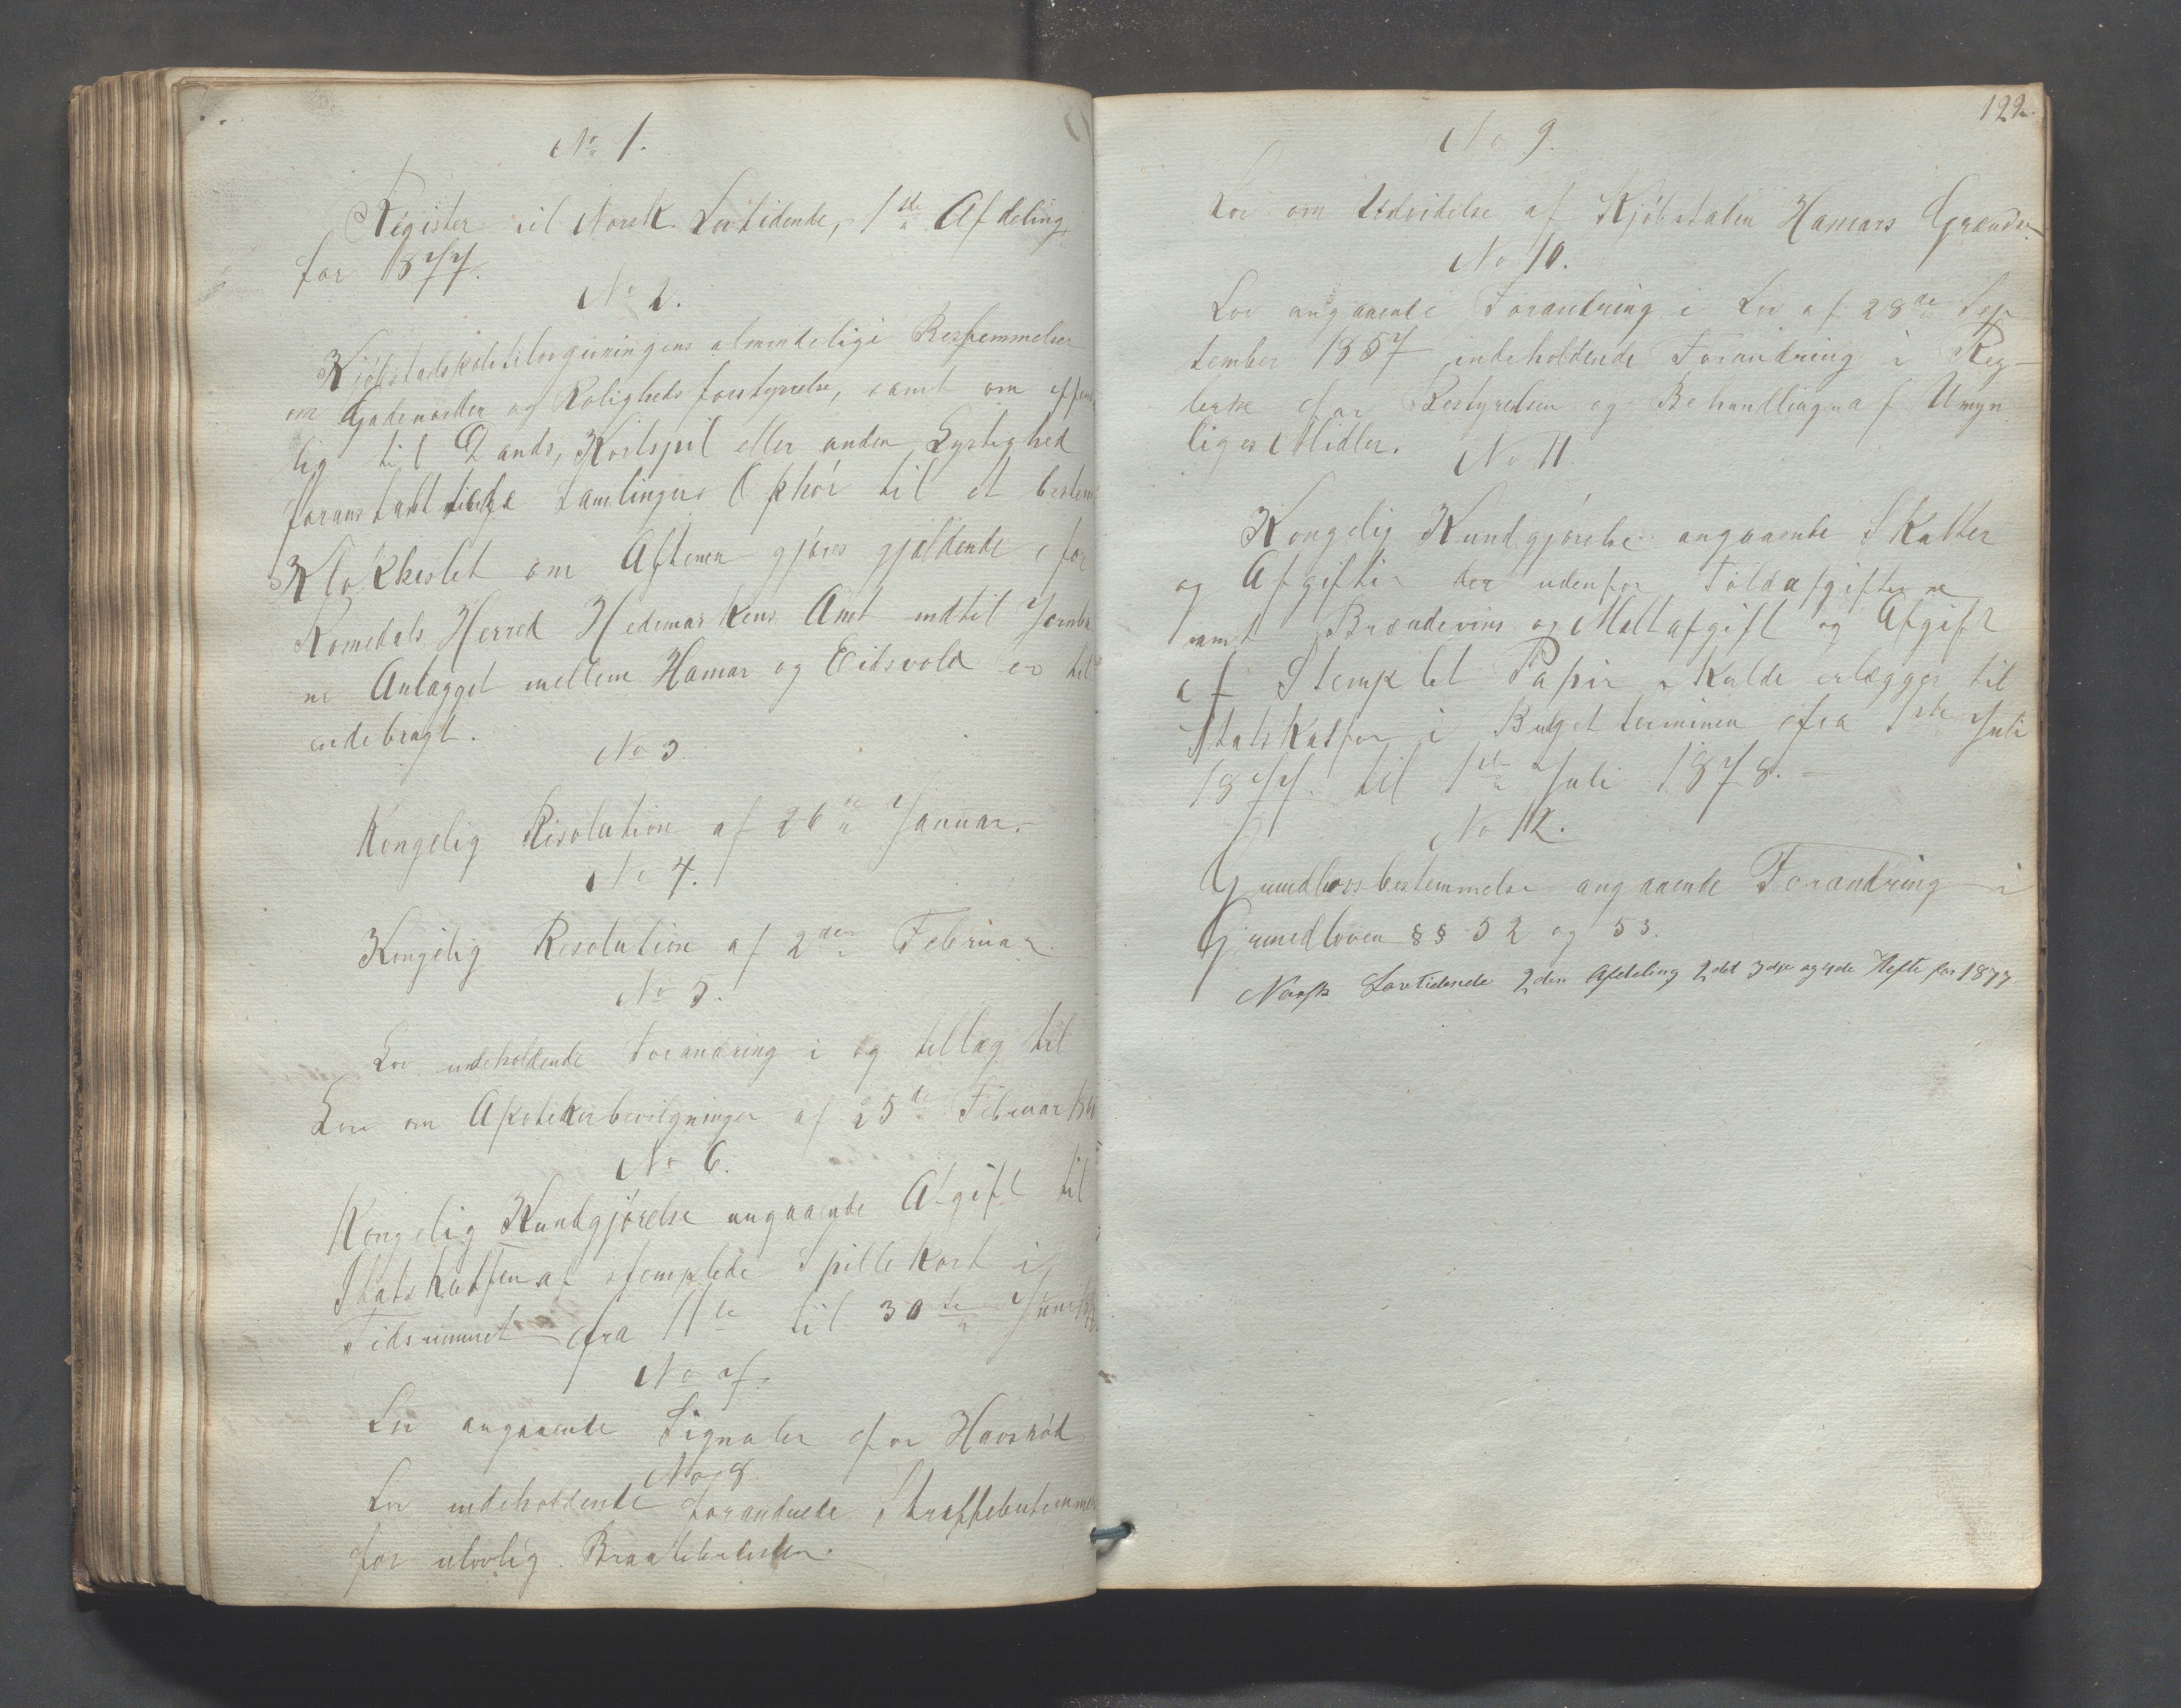 No 1.
Register til Norsk Lovtidende, 1ste Afdeling,
for 1877.
No 2.
Kjöbstadspolitilovgivningens almindelige Bestemmelser
om Gadeuorden og Roligheds forstyrrelse, samt om offent
lig til Dands, Kortspil eller anden Lystighed
foranstaltede Samlingers Ophör til et bestemt
Klokkeslet om Aftenen gjöres gjældende for
Romedals Herred Hedemarkens Amt indtil Jernba
ne Anlægget mellem Hamar og Eidsvold er til
endebragt.
No 3.
Kongelig Risolution af 26de Januar.-
No 4.
Kongelig Resolution af 2den Februar.
No 5.
Lov indeholdende Forandring i og tillæg til
Lov om Apotekerbevilgninger af 25de Februar
No 6.
Kongelig Kundgjörelse angaaende Afgift til
Statskassen af stemplede Spillekort i
Tidsrummet fra 11te til 30te Juni
No 7.
Lov angaaende Signaler for Havsnöd
No 8.
Lov indeholdende forandrede Straffebestemmel
for ulovlig Braatebrænden.
122.
No 9.
Lov om Udvidelse af Kjöbstaden Hamars Grændse.
No 10.
Lov angaaende Forandring i Lov af 28de Sep
tember 1857 indeholdende Forandring i Reg-
lerne for Bestyrelsen og Behandlingen af Umyn
diges Midler.
No 11.
Kongelig Kundgjörelse angaaende Skatter
og Afgifter der udenfor Toldafgifterne
samt Brændevins og Maltafgift og Afgift
af Stemplet Papir skulde erlægges til
Statskassen i Budgetterminen fra 1ste Juli
1877. til 1ste Juli 1878.-
No 12.
Grundlovsbestemmelse angaaende Forandring i
Grundloven §§ 52 og 53.
Norsk Lovtidende 2den Afdeling 2det 3dje og 4de Hefte for 1877